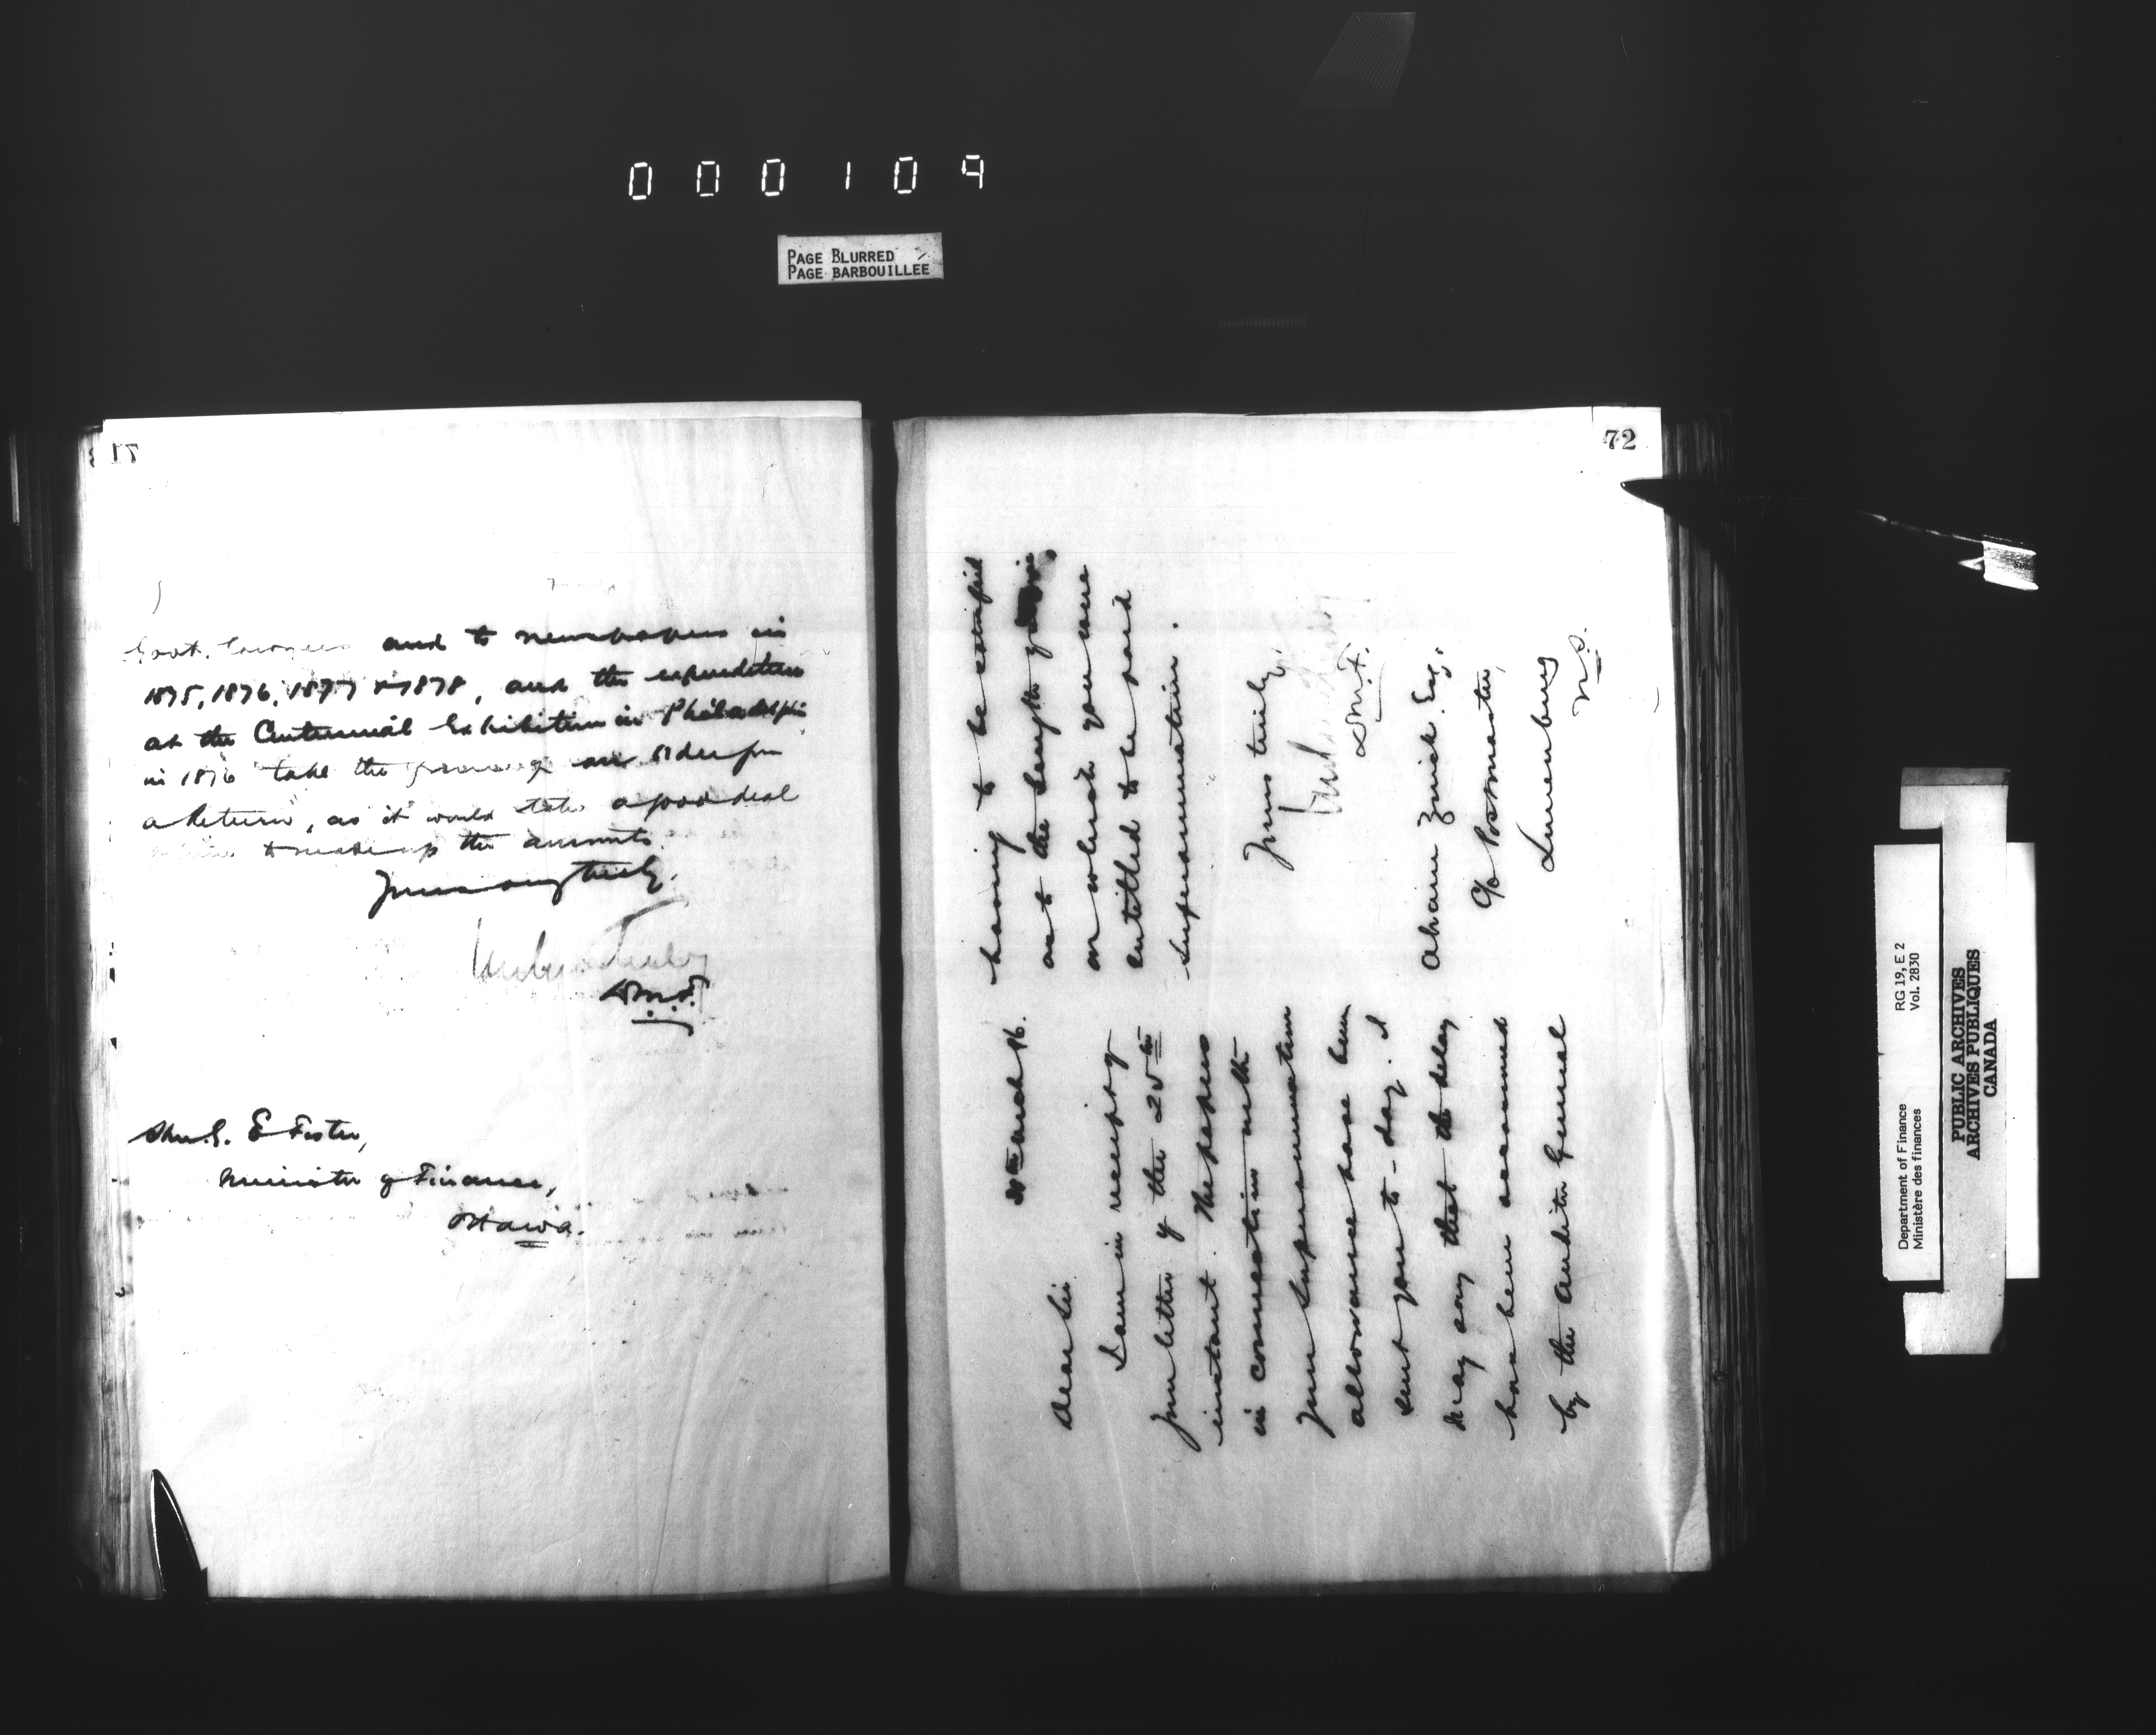 000109
PAGE BLURRED
PAGE BARBOUILLEE
71
Govt. and to newspapers in
1875, 1876, 1877 & 1878, and the expenditure
at the Centennial Exhibition in Philadelphia
in 1876 take the an Order for
a Return, as it would take a good deal
to make up the amounts.
Yours very truly,
D.M.F.
Hon. G. E. Foster,
Minister of Finance,
Ottawa.
72
30th March 96.
Dear Sir
I am in receipt of
your letter of the 25th
instant. The papers
in connection with
your Superannuation
allowance have been
sent you to-day. I
may say that the delay
has been occasioned
by the Auditor General
having to be satisfied
as to the length of
on which you were
entitled to be paid
superannuation.
Yours truly,
D.M.F.
Abram Zwick Esq.
c/o Postmaster,
Lunenburg
N.S.
Department of Finance
Ministère des finances
RG 19, E 2
Vol. 2830
PUBLIC ARCHIVES
ARCHIVES PUBLIQUES
CANADA